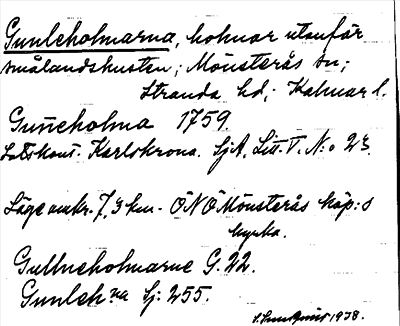 Gunleholmarna, holmar utanför
smålandskusten; Mönsterås sn;
Stranda hd; Kalmar l.
Guñeholma 1759.
Lotskont. Karlskrona. SjA, Litt. T. N:o 23.
Läge omkr. 7,3 km. ÖNÖ Mönsterås köp:s
kyrka.
Gullneholmarne G. 22.
Gunleh:na Sj. 255.
1938.